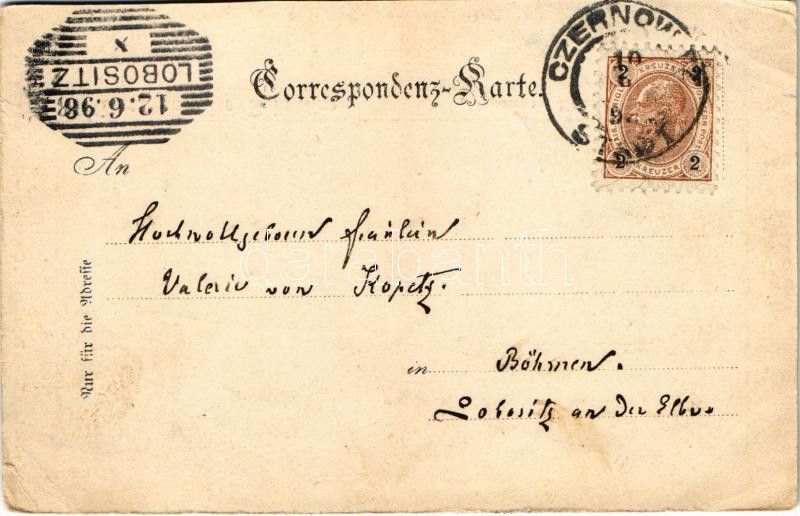 LOBOSITZ
12.6.98
X
Correspondenz-Karte.
CZERNOW
STADT
2 KREUZER 2
2 KREUZER 2
An
Hochwollgeboren Fräulein
Valerie von Kopetz.
in Böhmen.
Lobositz an der Elbe.
Nur für die Adresse
darabanth